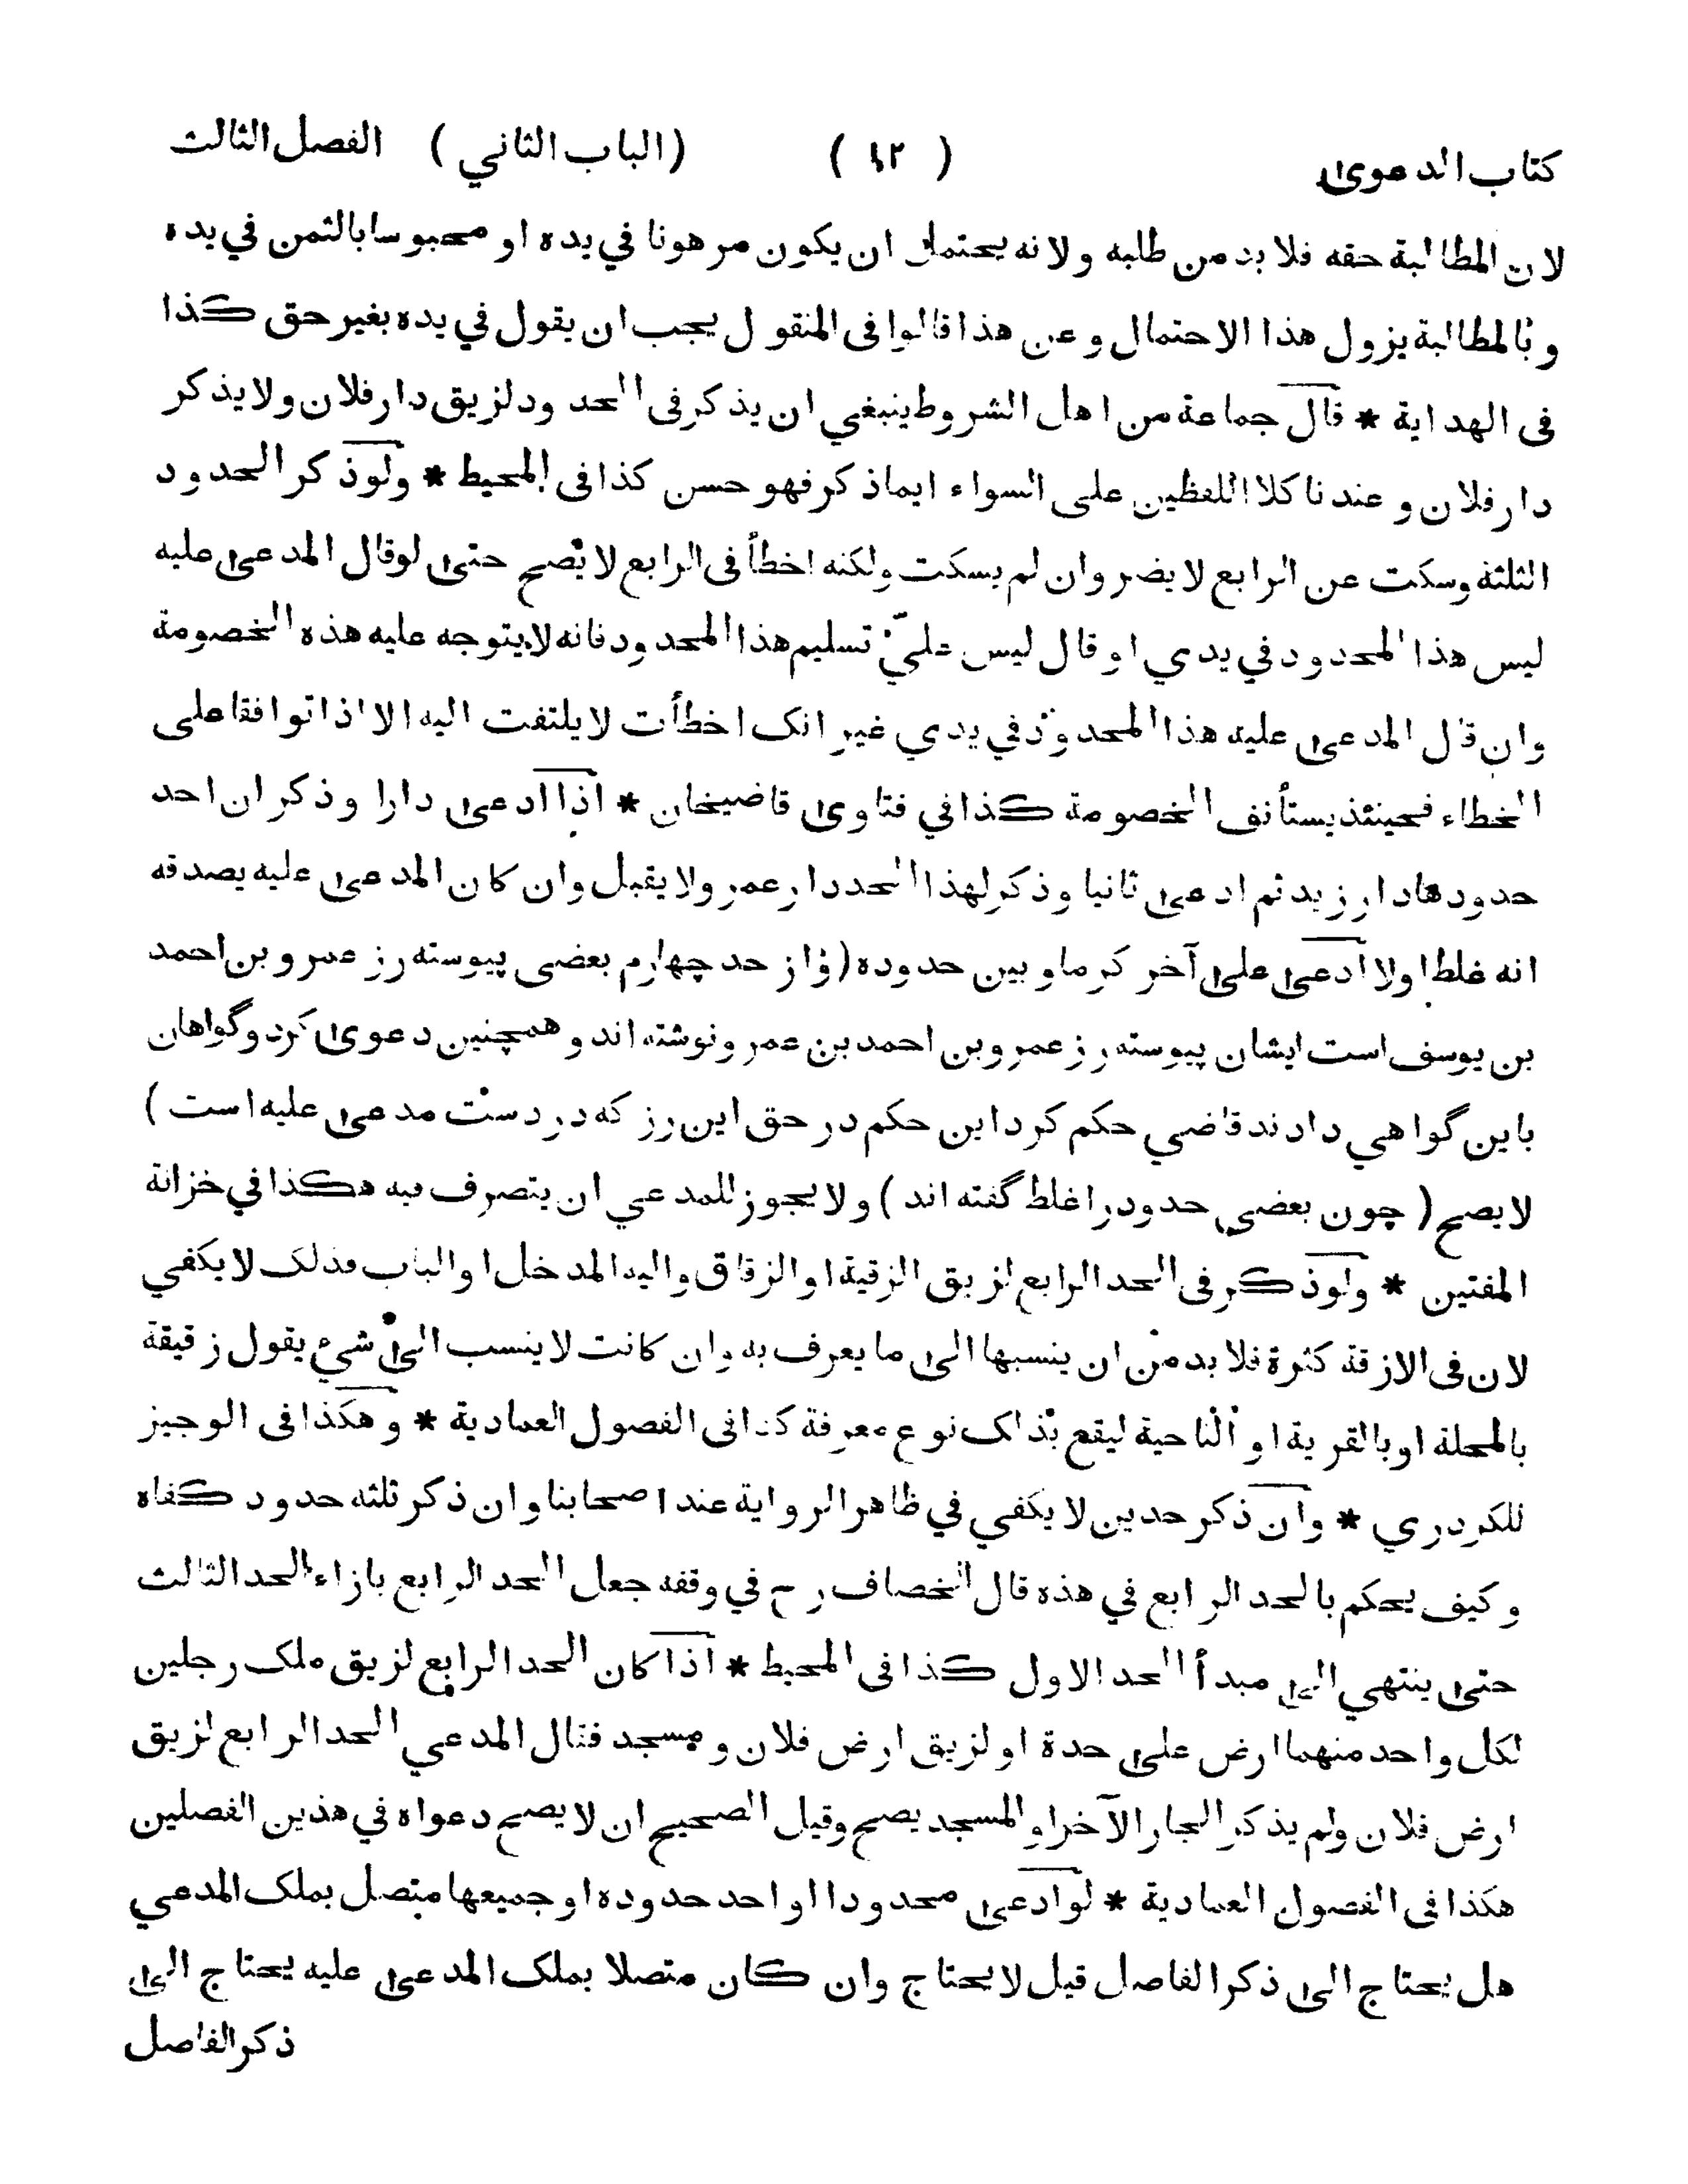 كتاب الدعوىٰ ( ١٢ ) ( الباب الثاني ) الفصل الثالث
لان المطالبة حقه فلا بد من طلبه ولانه يحتمل ان يكون مرهونا في يده او محبوسا بالثمن في يده
وبالمطالبة يزول هذا الاحتمال وعن هذا قالوا فى المنقول يجب ان يقول في يده بغير حق كذا
فى الهداية * قال جماعة من اهل الشروط ينبغي ان يذكر فى الحد ودلزيق دار فلان ولا يذكر
دار فلان وعندنا كلا اللفظين على السواء ايما ذكر فهو حسن كذا فى المحيط * ولو ذكر الحدود
الثلثة وسكت عن الرابع لا يضر وان لم يسكت ولكنه اخطأ فى الرابع لا يصح حتىٰ لو قال المدعىٰ عليه
ليس هذا المحدود في يدي او قال ليس عليّ تسليم هذا المحدود فانه لا يتوجه عليه هذه الخصومة
وان قال المدعىٰ عليه هذا المحدود في يدي غير انك اخطأت لا يلتفت اليه الا اذا توافقا على
الخطاء فحينئذ يستأنف الخصومة كذا في فتاوىٰ قاضيخان * اذا ادعىٰ دارا وذكر ان احد
حدودها دار زيد ثم ادعىٰ ثانيا وذكر لهذا الحد دار عمر ولا يقبل وان كان المدعىٰ عليه يصدقه
انه غلط اولا ادعىٰ علىٰ آخر كرما وبين حدوده ( واز حد چهارم بعضى پيوسته رز عمرو بن احمد
بن يوسف است ايشان پيوسته رز عمرو بن احمد بن عمرو نوشته اند و همچنين دعوىٰ كرد وگواهان
باين گواهي دادند قاضي حكم كرد اين حكم در حق اين رز كه در دست مدعىٰ عليه است )
لا يصح ( چون بعضى حدود را غلط گفته اند ) ولا يجوز للمدعي ان يتصرف فيه هكذا في خزانة
المفتين * ولو ذكر فى الحد الرابع لزيق الزقيقة او الزقاق واليه المدخل او الباب فذلك لا يكفي
لان فى الازقة كثرة فلا بد من ان ينسبها الىٰ ما يعرف به وان كانت لا ينسب الىٰ شيء يقول زقيقة
بالمحلة او بالقرية او الناحية ليقع بذلك نوع معرفة كذا فى الفصول العمادية * وهكذا فى الوجيز
للكردري * وان ذكر حدين لا يكفي في ظاهر الرواية عند اصحابنا وان ذكر ثلثه حدود كفاه
وكيف يحكم بالحد الرابع في هذه قال الخصاف رح في وقفه جعل الحد الرابع بازاء الحد الثالث
حتىٰ ينتهي الىٰ مبدأ الحد الاول كذا فى المحيط * اذا كان الحد الرابع لزيق ملك رجلين
لكل واحد منهما ارض علىٰ حدة او لزيق ارض فلان ومسجد فقال المدعي الحد الرابع لزيق
ارض فلان ولم يذكر الجار الآخر او المسجد يصح وقيل الصحيح ان لا يصح دعواه في هذين الفصلين
هكذا فى الفصول العمادية * لو ادعىٰ محدودا او احد حدوده او جميعها متصل بملك المدعي
هل يحتاج الىٰ ذكر الفاصل قيل لا يحتاج وان كان متصلا بملك المدعىٰ عليه يحتاج الىٰ
ذكر الفاصل